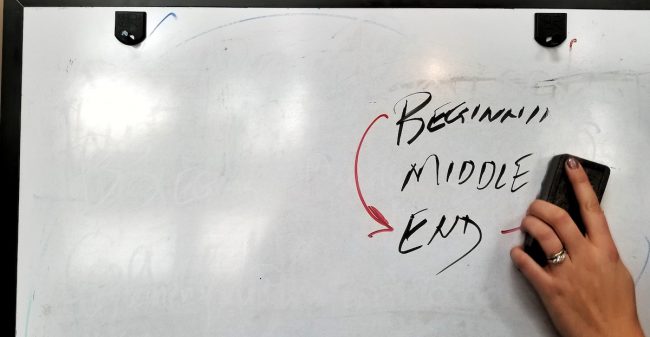 BEGINNI
MIDDLE
END